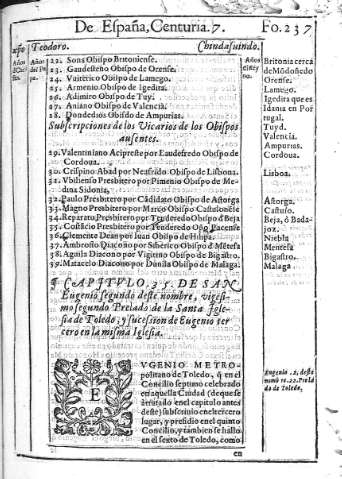 De España, Centuria. 7.
Fo. 237
Teodoro.
Chindasuindo.
22. Sons Obispo Britoniense.
23. Gaudesteño Obispo de Orense.
24. Vuitérico Obispo de Lamego.
25. Armenio Obispo de Igedita.
26. Adimiro Obispo de Tuy.
27. Aniano Obispo de Valencia.
28. Dondedio Obispo de Ampurias.
Subscripciones de los Vicarios de los Obispos
ausentes.
29. Valentiniano Acipreste por Eaudefredo Obispo de
Cordoua.
30. Crispino Abad por Neufrido Obispo de Lisbona.
31. Presbitero por Pimenio Obispo de Me-
dina Sidonia.
32. Paulo Presbitero por Cãdidato Obispo de Astorga
33. Magno Presbitero por Marco Obispo Castulonẽse
34. Reparato Presbitero por Teuderedo Obispo de Beja
35. Presbitero por Obispo Pacense
36. Clemente Dean por Iuan Obispo de
37. Ambrosio Diacono por Obispo de Mẽtesa
38. Aguila Diacono por Vigitino Obispo de Bigastro.
39. Matacelo Diacono por Dunila Obispo de Malaga.
¶ CAPITVLO. 25. DE SAN
Eugenio segundo deste nombre, vigesi-
mo segundo Prelado de la Santa Igle-
sia de Toledo; y sucession de Eugenio ter
cero en la misma Iglesia.
EVGENIO METRO-
politano de Toledo, q̃ en el
Concilio septimo celebrado
en aquella Ciudad (de que se
à tratado en el capitulo antes
deste) subscriuio en el tercero
lugar, y presidio en el quinto
Concilio, y tambien se hallo
en el sexto de Toledo, como
en
Britonia cerca
de Mõdoñedo
Orense.
Lamego.
Igedita que es
Idania en Por
tugal.
Tuyd.
Valencia
Ampurias.
Cordoua.
Lisboa.
Astorga.
Castuso.
Beja, ò Bada-
joz.
Niebla
Mentesa
Bigastro.
Malaga
Eugenio .2. deste
nombre .22. Prela
do de Toledo.